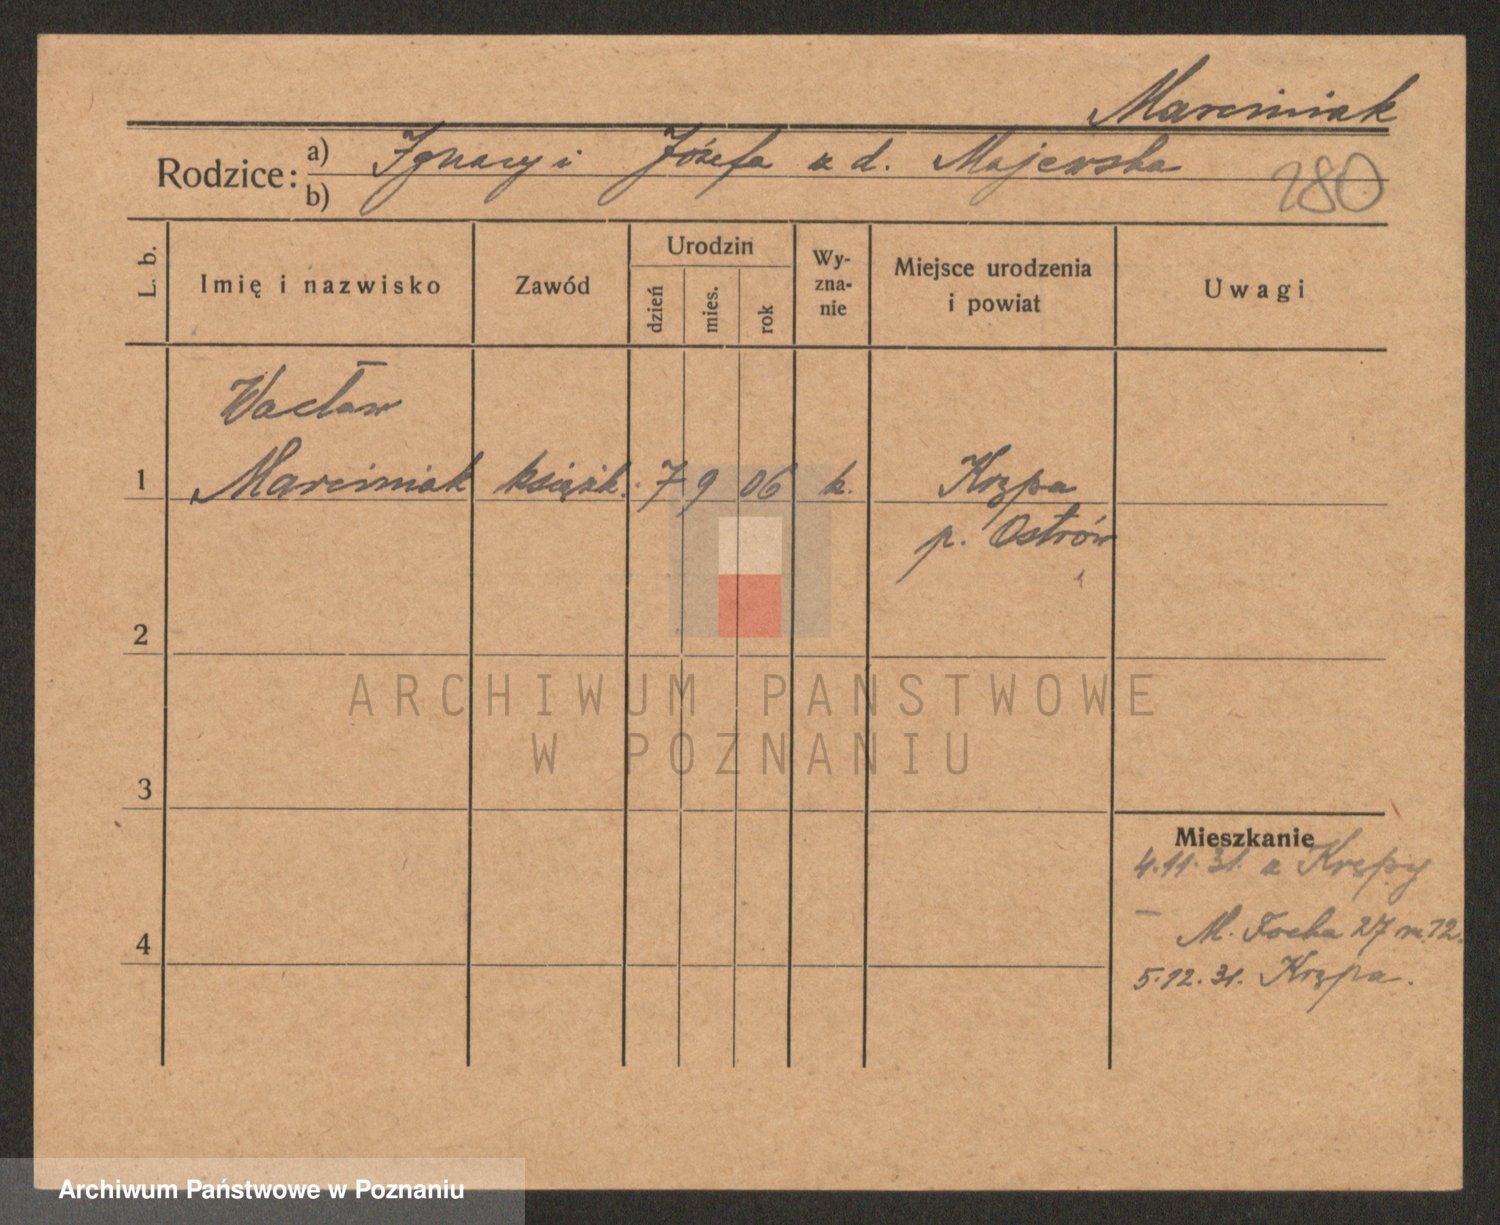 Marciniak
Rodzice: a) Ignacy i Józefa z d. Majewska
b)
280
L. b.
Imię i nazwisko
Zawód
Urodzin
dzień
mies.
rok
Wy-
zna-
nie
Miejsce urodzenia
i powiat
Uwagi
Wacław
1 Marciniak książk. 7 9 06 k. Krępa
p. Ostrów
2
3
4
Mieszkanie
4.11.31. z Krępy
– M. Focha 27 m. 12.
5.12.31. Krępa.
ARCHIWUM PAŃSTWOWE
W POZNANIU
Archiwum Państwowe w Poznaniu